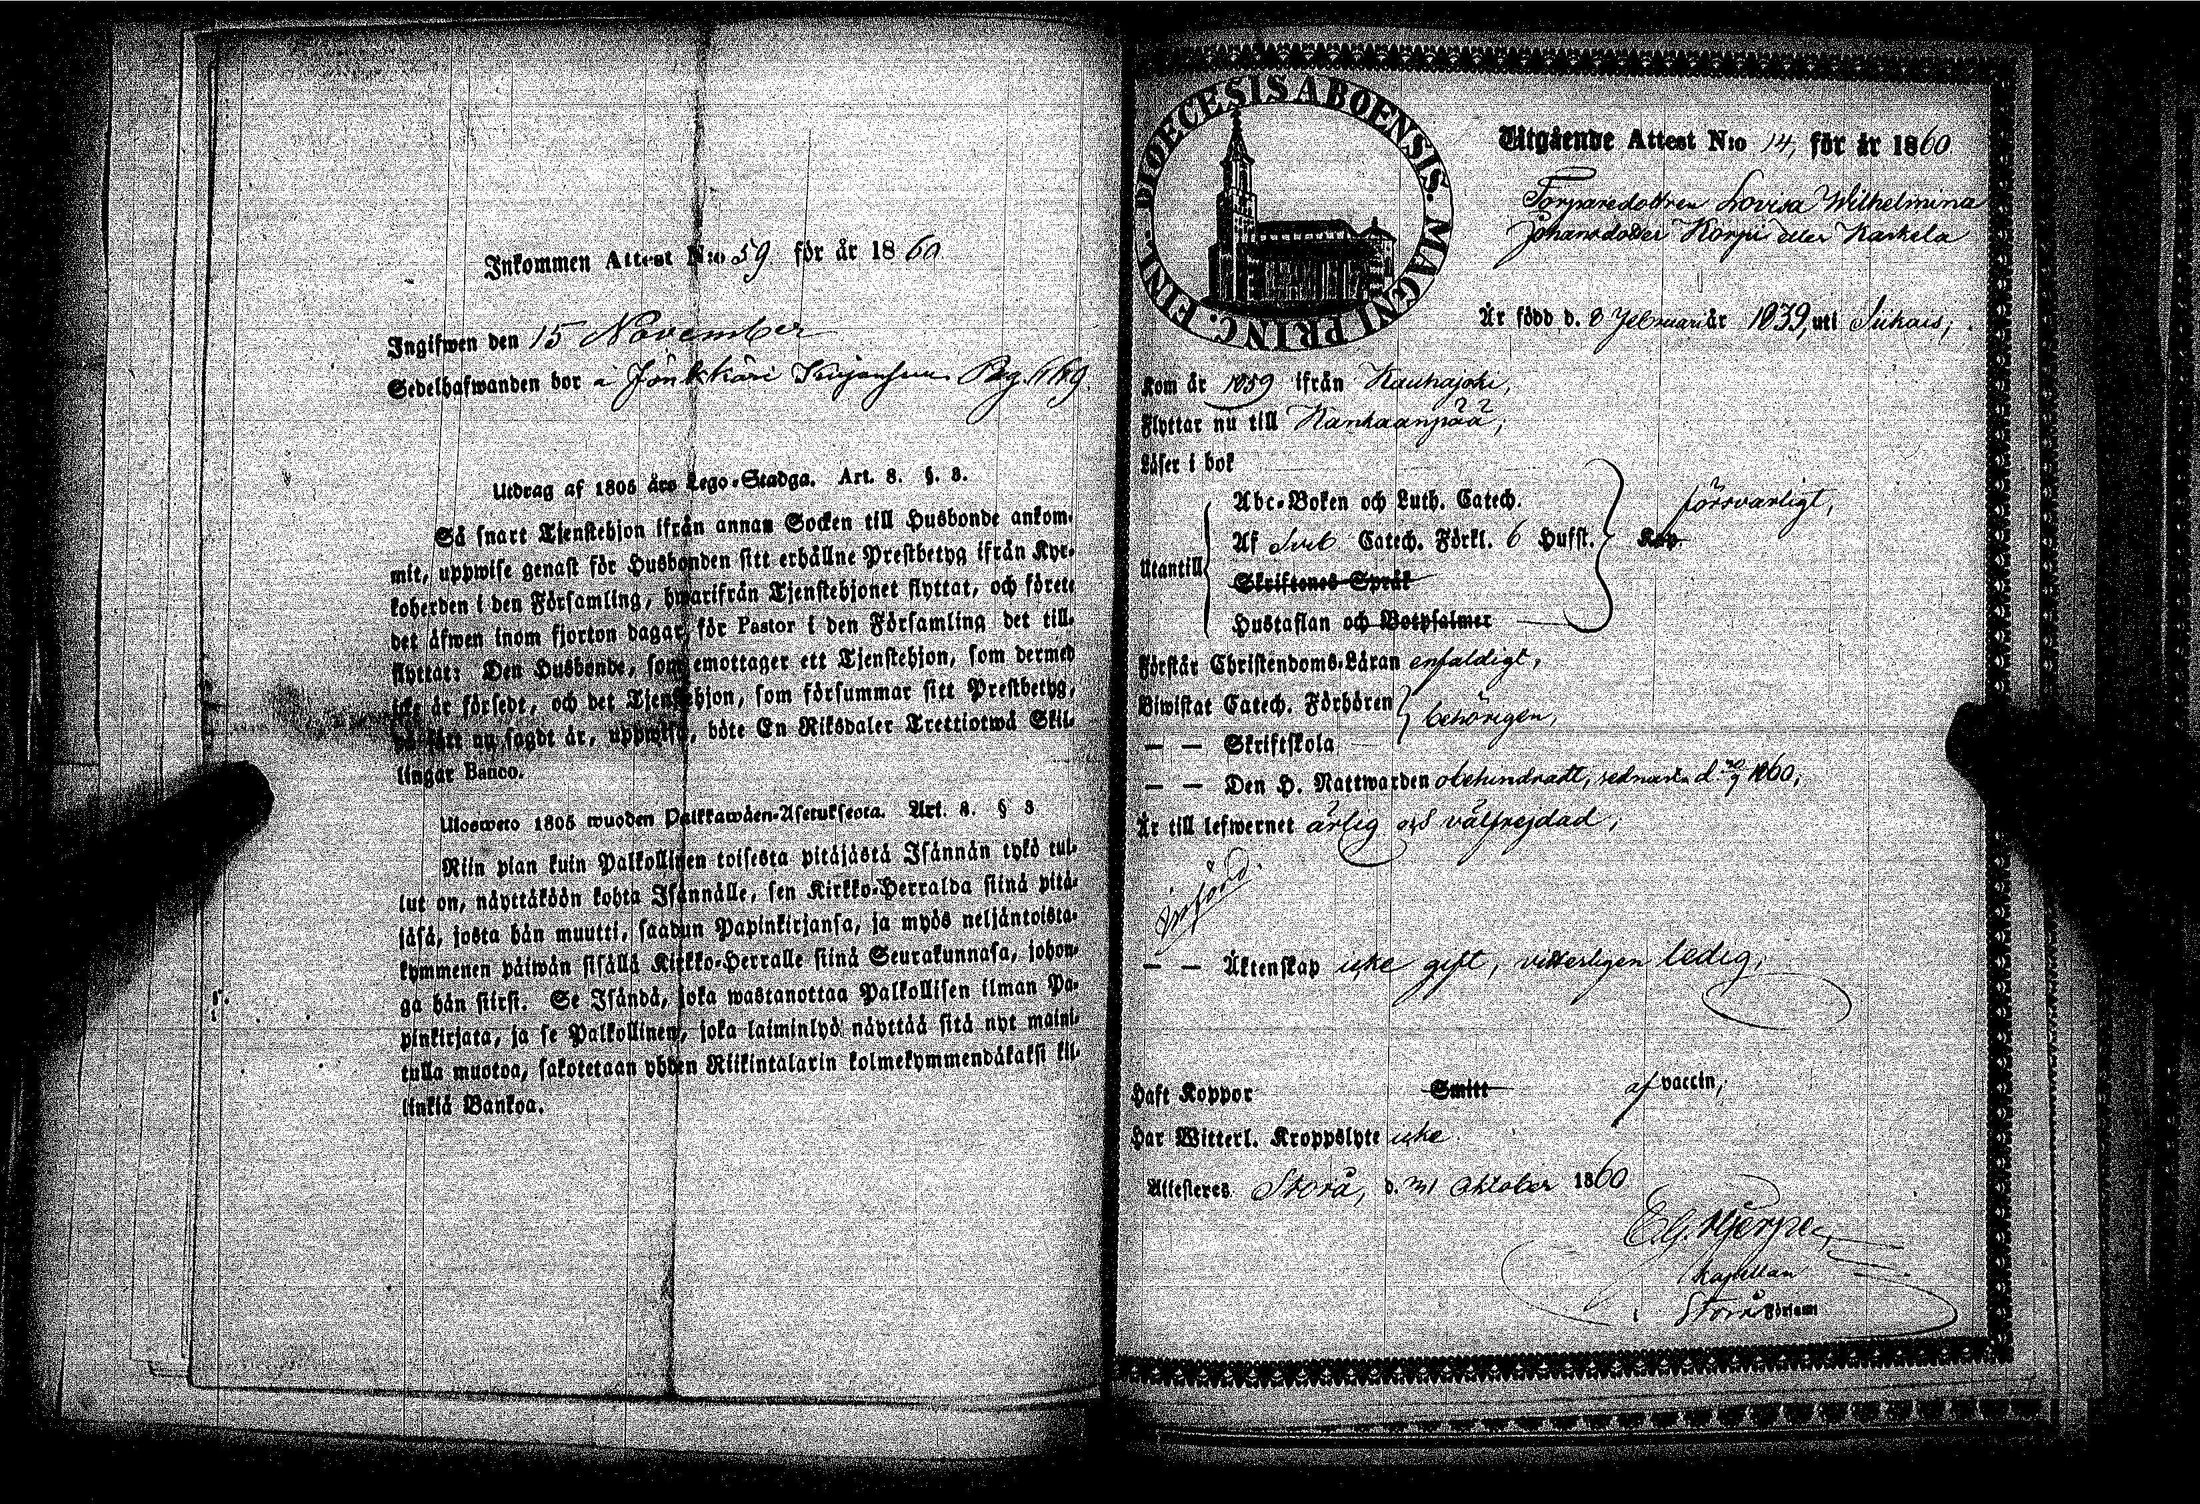 Inkommen Attest N:o 59 för år 1860
Ingifwen den 15 November
Sedelhafwanden bor å Jönkkäri Pag.
Utdrag af 1805 års Lego-Stadga. Art. 8. §. 3.
Så snart Tjenstehjon ifrån annan Socken till Husbonde ankom-
mit, uppwise genast för Husbonden sitt erhållne Prestbetyg ifrån Kyr-
koherden i den Församling, hwarifrån Tjenstehjonet flyttat, och förete
det äfwen inom fjorton dagar för Pastor i den Församling det till-
flyttat: Den Husbonde, som emottager ett Tjenstehjon, som dermed
icke är försedt, och det Tjenstehjon, som försummar sitt Prestbetyg,
på sätt nu sagdt är, uppwisa, böte En Riksdaler Trettiotwå Skil-
lingar Banco.
Ulosweto 1805 wuoden Palkkawäen-Asetuksesta. Art. 8. § 3
Niin pian kuin Palkollinen toisesta pitäjästä Isännän tykö tul-
lut on, näyttäköön kohta Isännälle, sen Kirkko-Herralda siinä pitä-
jäsä, josta hän muutti, saadun Papinkirjansa, ja myös neljäntoista-
kymmenen päiwän sisällä Kirkko-Herralle siinä Seurakunnasa, johon-
ga hän siirsi. Se Isändä, joka wastanottaa Palkollisen ilman Pa-
pinkirjata, ja se Palkollinen, joka laiminlyö näyttää sitä nyt maini-
tulla muotoa, sakotetaan yhden Riikintalarin kolmekymmendäkaksi kil-
linkiä Bankoa.
DIOECESIS ABOENSIS. MAGNI PRINC. FINL.
Utgående Attest N:o 14, för år 1860.
Torparedottren Lovisa Wilhelmina
Johansdotter Korpi eller Kaskela
Är född d. 8 Februari år 1839, uti Siikais,
Kom år 1859 ifrån Kauhajoki,
Flyttar nu till Kankaanpää,
Läser i bok
Abc-Boken och Luth. Catech.
försvarligt,
Utantill
Af Sveb. Catech. Förkl. 6 Hufst.
Skriftenes Språk
Hustaflan och Botpsalmer
Förstår Christendoms-Läran enfaldigt,
Biwistat Catech. Förhören
behörigen,
— — Skriftskola
— — Den H. Nattwarden obehindradt, sednast d. 1860,
Är till lefwernet ärlig och välfrejdad,
införd.
— — Äktenskap icke gift, vitterligen ledig,
Haft Koppor Smitt af vaccin,
Har Witterl. Kroppslyte icke.
Attesteres Storå, d. 31 Oktober 1860
E.G. Hjerpe,
Kapellan
i Storå Församl